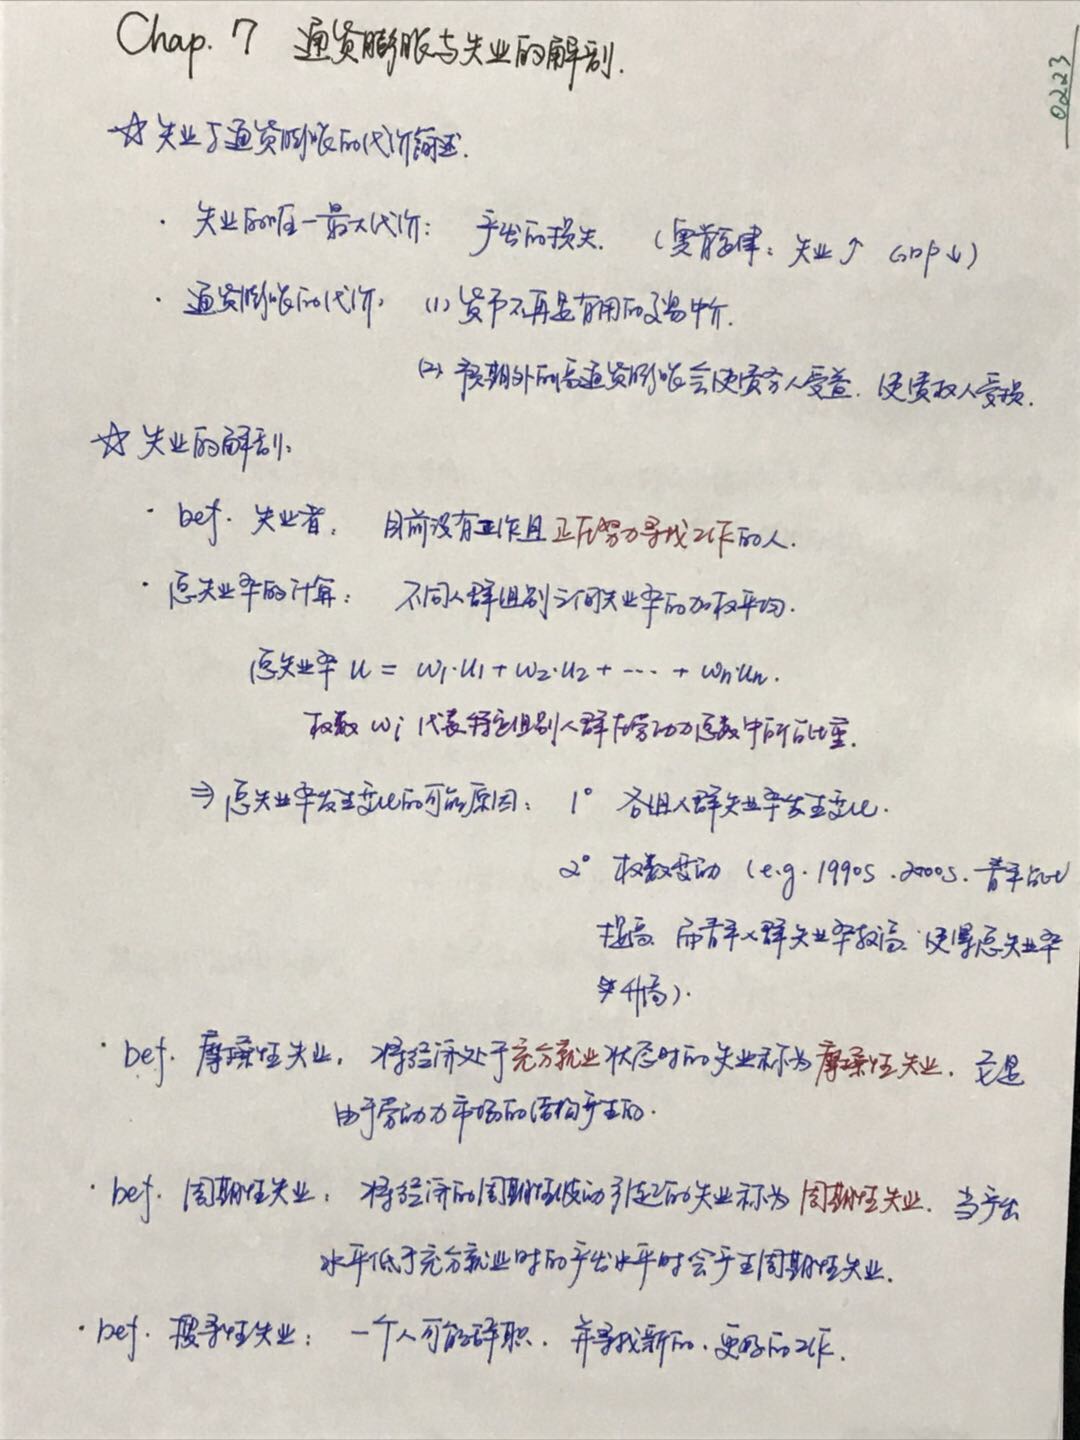 Chap. 7 通货膨胀与失业的解剖.
0223
☆ 失业与通货膨胀的代价简述.
· 失业的唯一最大代价: 产出的损失. (奥肯定律: 失业↑ GDP↓)
· 通货膨胀的代价: (1) 货币不再是有用的交易中介.
(2) 预期外的高通货膨胀会使债务人受益. 使债权人受损.
☆ 失业的解剖:
· Def. 失业者: 目前没有工作且正在努力寻找工作的人.
· 总失业率的计算: 不同人群组别之间失业率的加权平均.
总失业率 u = w1·u1 + w2·u2 + ··· + wn·un.
权数 wi 代表特定组别人群在劳动力总数中所占比重.
⇒ 总失业率发生变化的可能原因: 1° 各组人群失业率发生变化.
2° 权数变动 (e.g. 1990s. 2000s. 青年占比
提高. 而青年人群失业率较高. 使得总失业率
升高).
· Def. 摩擦性失业: 将经济处于充分就业状态时的失业称为摩擦性失业. 它是
由于劳动力市场的结构产生的.
· Def. 周期性失业: 将经济的周期性波动引起的失业称为周期性失业. 当产出
水平低于充分就业时的产出水平时会产生周期性失业.
· Def. 搜寻性失业: 一个人可能辞职. 并寻找新的. 更好的工作.